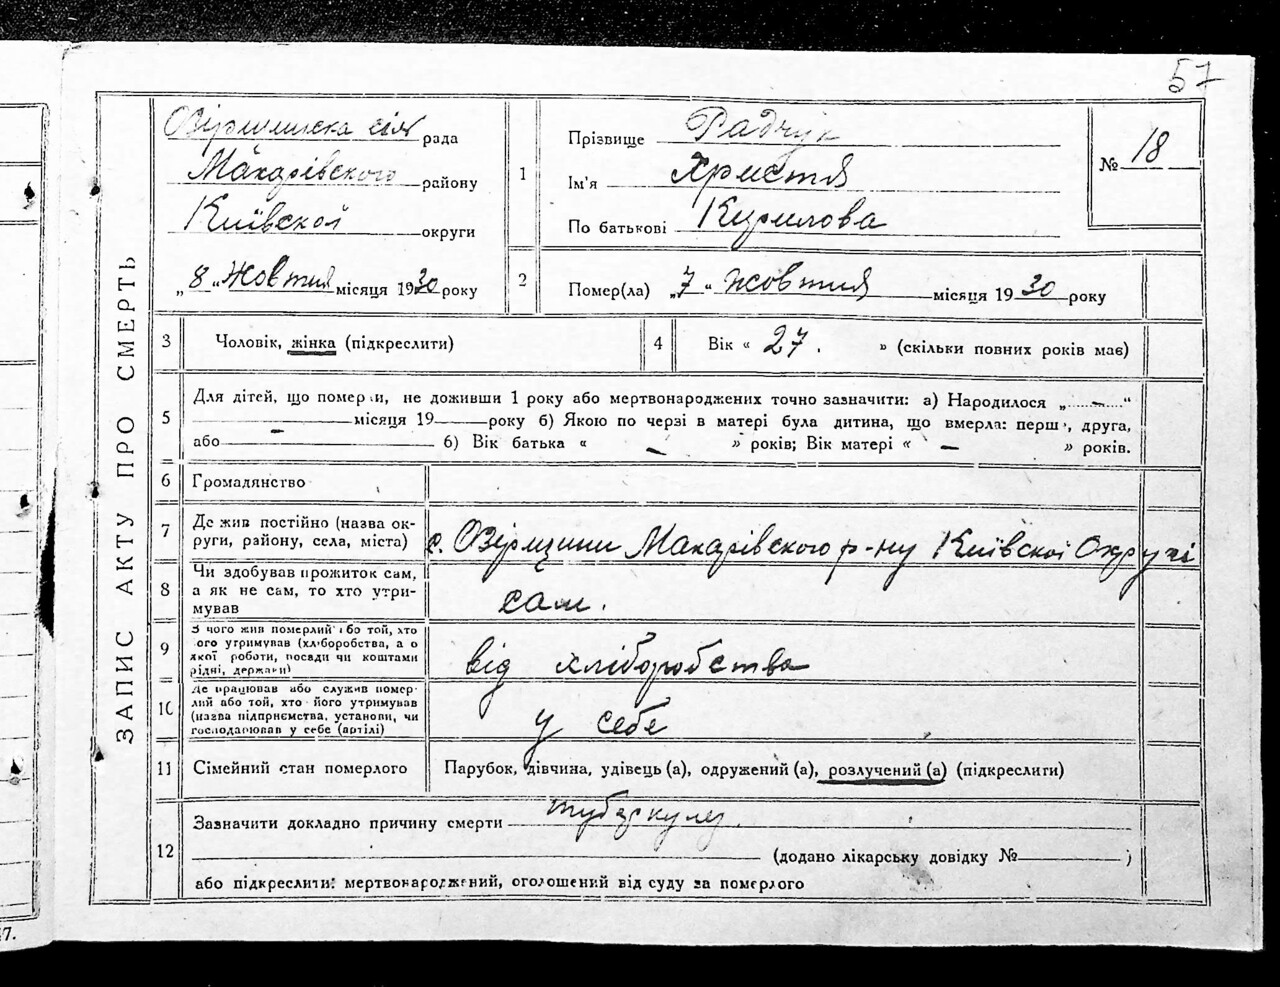 57
ЗАПИС АКТУ ПРО СМЕРТЬ
Озірщинска сіл рада
Макарівского району
Київскої округи
„ 8 " Жовтня місяця 1930 року
1
Прізвище Радчук
Ім'я Христя
По батькові Курилова
№ 18
2
Помер(ла) „ 7 " жовтня місяця 1930 року
3 Чоловік, жінка (підкреслити)
4 Вік « 27. » (скільки повних років мав)
5
Для дітей, що померли, не доживши 1 року або мертвонароджених точно зазначити: а) Народилося „ — "
— місяця 19 року б) Якою по черзі в матері була дитина, що вмерла: перш, друга,
або 6) Вік батька « — » років; Вік матері « — » років.
6 Громадянство
7 Де жив постійно (назва ок-
руги, району, села, міста)
с. Озірщини Макарівского р-ну Київскої Округи
8 Чи здобував прожиток сам,
а як не сам, то хто утри-
мував
сам.
9 З чого жив померлий або той, хто
його утримував (хліборобства, а о
якої роботи, посади чи коштами
рідні, держави)
від хліборобства
10 Де працював або служив помер-
лий або той, хто його утримував
(назва підприємства, установи, чи
господарював у себе (артілі)
у себе
11 Сімейний стан померлого
Парубок, дівчина, удівець (а), одружений (а), розлучений (а) (підкреслити)
12
Зазначити докладно причину смерти туберкулез.
(додано лікарську довідку № )
або підкреслити: мертвонароджений, оголошений від суду за померлого
47.